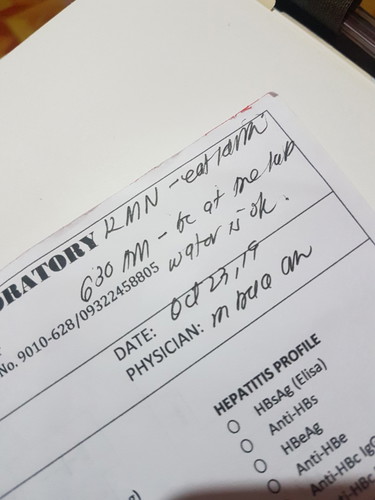 ORATORY RMN - eat
630 AM - be at the lab
No. 9010-628/09322458805 water is ok.
DATE: Oct 23, 19
PHYSICIAN:
HEPATITIS PROFILE
HBsAg (Elisa)
Anti-HBs
HBeAg
Anti-HBe
Anti-HBc IgG